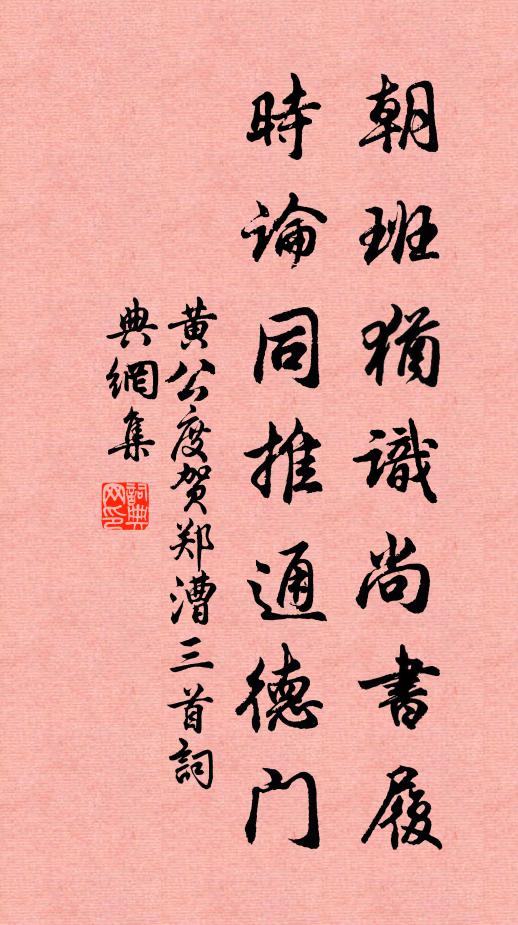 朝班猶識尚書履
時論同推通德门
黄公度贺郑漕三首詞
典網集
詞典
网印